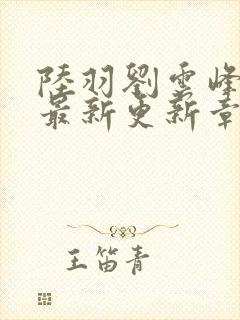 陸羽劉雲峰
最新更新章
王笛青